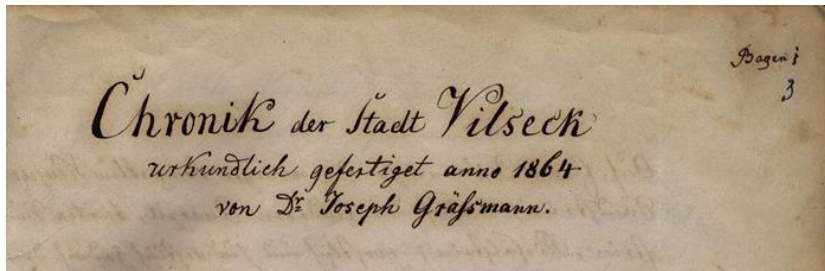 Bogen 1
3
Chronik der Stadt Vilseck
urkundlich gefertiget anno 1864
von Dr Joseph Gräſsmann.